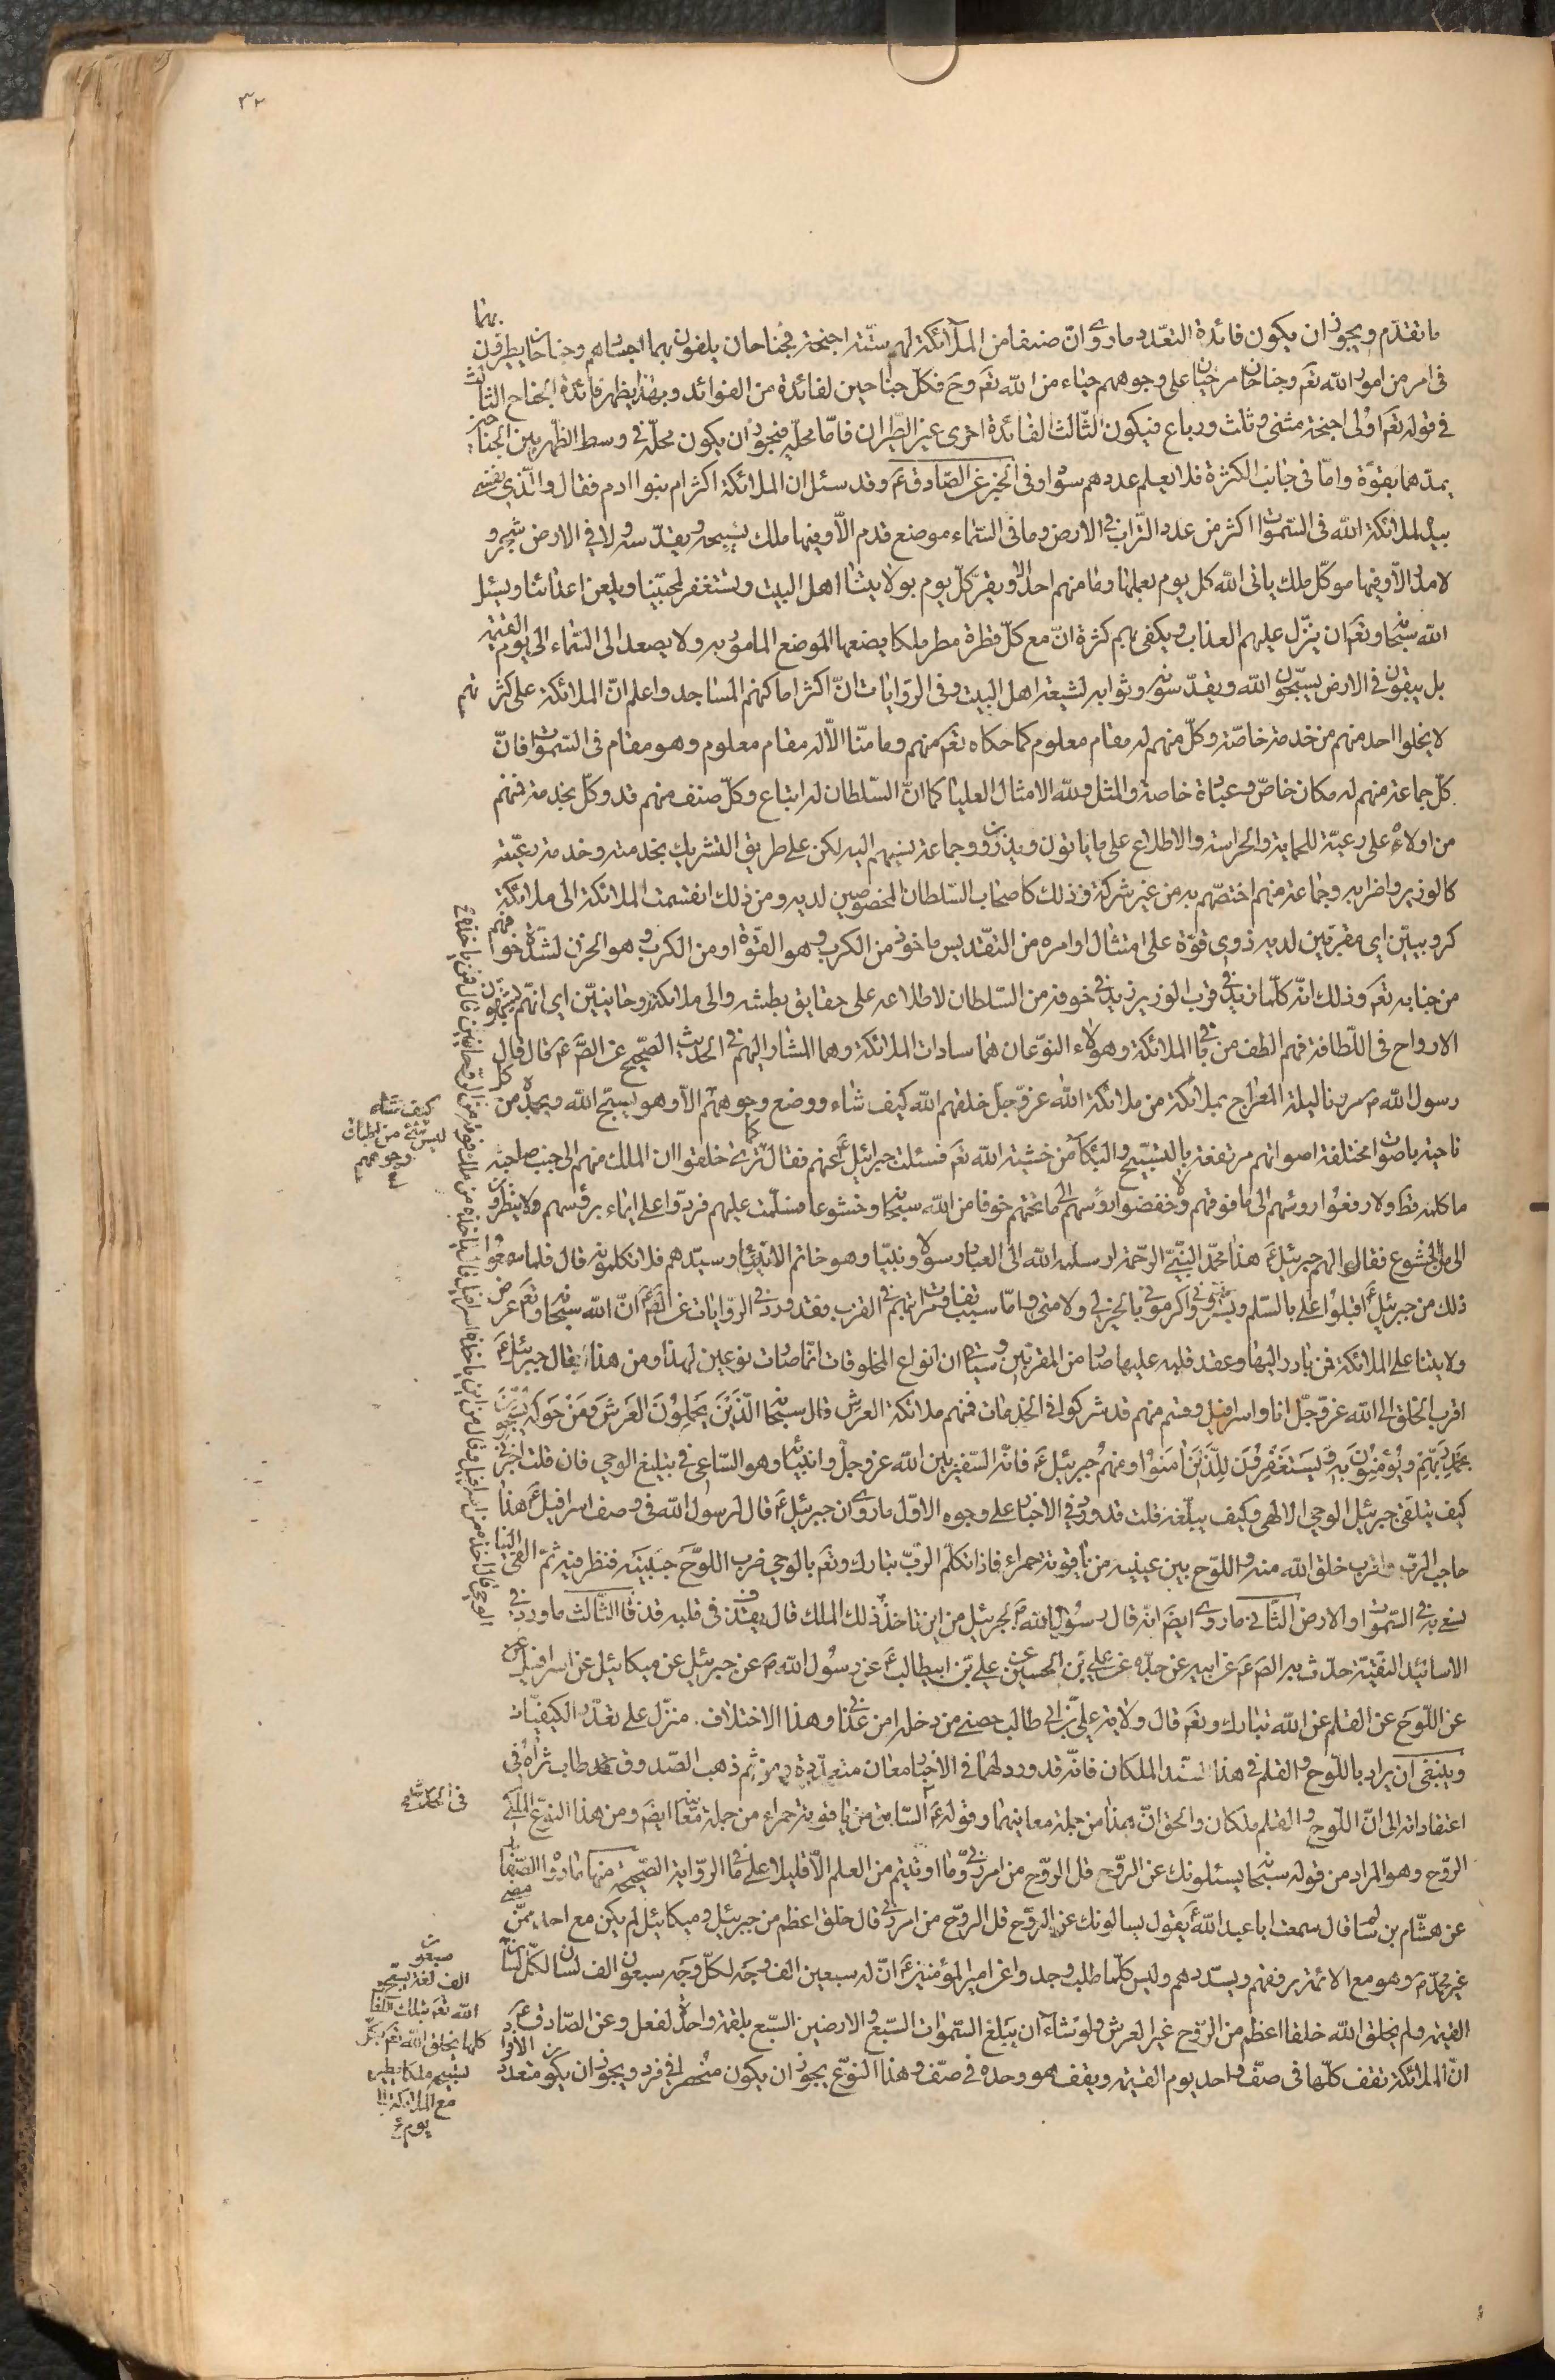 ٣٢
ما تقدّم ويجوز ان يكون فائدة التعدّد ما روى انّ صنفا من الملآئكة لهم ستّة اجنحة فجناحان يلفون بهما اجسادهم وجناحان يطيرون بهما
فى امر من امور الله تعَ وجناحان مرخيان على وجوههم حياء من الله تعَ وحَ فكلّ جناحين لفائدة من الفوائد وبهذا يظهر فائدة الجناح الثالث
فى قوله تعَ اولى اجنحة مثنى وثلث ورباع فيكون الثّالث لفائدة اخرى غير الطّيران فامّا محلّه فيجوز ان يكون محلّه فى وسط الظّهر بين الجناحين
يمدّهما بقوّة وامّا فى جانب الكثرة فلا يعلم عددهم سواه وفى الخبر عن الصّادق عَ وقد سئل ان الملائكة اكثر ام بنوا ادم فقال والّذى نفسى
بيده لملائكة الله فى السّموات اكثر من عدد التّراب فى الارض وما فى السّماء موضع قدم الّا وفيها ملك يسبّحه ويقدّسه ولا فى الارض شجر و
لا مدر الّا وفيها موكّل ملك ياتى الله كل يوم بعلمها وما منهم احد الّا ويقرّب كلّ يوم بولايتنا اهل البيت ويستغفر لمحبّينا ويلعن اعدائنا ويسئل
الله سبحانه وتعَ ان ينزّل عليهم العذاب ويكفى بهم كثرة انّ مع كلّ قطرة مطر ملكا يضعها الموضع المامور به ولا يصعد الى السّماء الى يوم القيمة
بل يبقون فى الارض يسبّحون الله ويقدّسونه وثوابه لشيعة اهل البيت وفى الرّوايات انّ اكثر اماكنهم المساجد واعلم انّ الملائكة على كثرتهم
لا يخلوا احد منهم من خدمة خاصّة وكلّ منهم له مقام معلوم كما حكاه تعَ عنهم وما منّا الّا له مقام معلوم وهو مقام فى السّموات فانّ
كلّ جماعة منهم له مكان خاصّ وعبادة خاصة والمثل ولله الامثال العليا كما انّ السّلطان له اتباع وكلّ صنف منهم قد وكّل بخدمة فمنهم
من اولاه على رعيّته للحماية والحراسة والاطلاع على ما ياتون ويذرون وجماعة ينسبهم اليه لكن على طريق التشريك بخدمته وخدمة رعيّته
كالوزير واضرابه وجماعة منهم اختصّهم به من غير شركة وذلك كاصحاب السّلطان المخصوصين لديه ومن ذلك انقسمت الملائكة الى ملائكة
كروبيّين اى مقرّبين لديه ذوى قوّة على امتثال اوامره من التقديس ماخوذ من الكرب وهو القوّة او من الكرب وهو الحزن لشدّة خوفهم
من جنابه تعَ وذلك انّه كلّما زيد فى قرب الوزير زيد فى خوفه من السّلطان لاطلاعه على حقايق بطشه والى ملائكة روحانيّين اى انّهم يشبهون
الارواح فى اللّطافة فهم الطف من باقى الملائكة وهؤلاء النوّعان هما سادات الملائكة وهما المشار اليهم فى الحديث الصّحيح عن الصَّ عَ قال قال
رسول الله صَ مررنا ليلة المعراج بملائكة من ملائكة الله عزّ وجلّ خلقهم الله كيف شاء ووضع وجوههم الّا وهو يسبّح الله ويحمده من كل
ناحية باصوات مختلفة اصواتهم مرتفعة بالتسبيح والبكاء من خشية الله تعَ فسئلت جبرائيل عَ عنهم فقال كما ترى خلقوا ان الملك منهم الى جنب صاحبه
ما كلمه قط ولا رفعوا روسهم الى ما فوقهم ولا خفضوا رؤسهم الى ما تحتهم خوفا من الله سبحانه وخشوعا فسلّمت عليهم فردّوا على ايماء برؤسهم ولا ينظرون
الى من الخشوع فقال لهم جبرئيل عَ هذا محمّد النّبىّ الرّحمة ارسله الله الى العباد رسولا ونبيّا وهو خاتم الانبياء وسيّدهم فلا تكلمونه قال فلما سمعوا
ذلك من جبرئيل عَ اقبلوا على بالسّلم وبشّرونى واكرمونى بالخير لى ولامتى وامّا سبب تفاوت مراتبهم فى القرب فقد ورد فى الروّايات عن الصَّ عَ انّ الله سبحانه وتعَ عرض
ولايتنا على الملائكة فمن بادر اليها وعقد قلبه عليها صار من المقرّبين وسياتى ان انواع المخلوقات انّما صارت نوعين لهذا ومن هذا يقال جبرئيل عَ
اقرب الخلق الى الله عزّ وجلّ انا واسرافيل وقسم منهم قد شركوا فى الخدمات فمنهم ملائكة العرش قال سبحانه الَّذِينَ يَحْمِلُونَ العَرشَ وَمَنْ حَولَه يُسَبِّحُونَ
بِحَمْدِ رَبِّهِمْ وَيُؤمِنُونَ بِهِ وَيَستَغفِرُونَ لِلَّذينَ امَنُوْا ومنهم جبرئيل عَ فانّه السّفير بين الله عزّ وجلّ وانبيائه وهو السّاعى فى تبليغ الوحى فان قلت اخبرنى
كيف يتلقى جبرئيل الوحى الالهى وكيف يبلّغه قلت قد ورد فى الاخبار على وجوه الاوّل ما روى ان جبرئيل عَ قال لرسول الله فى وصف اسرافيل عَ هذا
حاجب الربّ واقرب خلق الله منه واللّوح بين عينيه من ياقوتة حمراء فاذا تكلّم الربّ تبارك وتعَ بالوحى ضرب اللّوح جبينه فنظر فيه ثمّ القى الينا
نسعى به فى السّموات والارض الثّانى ما روى ايضَ انه قال رسول الله صَ لجبرئيل من اين تاخذ ذلك الملك قال يقذف فى قلبه قذفا الثّالث ما ورد فى
الاسانيد النّقيّة حدّث به الصَ عَ عن ابيه عن جدّه عن على بن الحسين عن علىّ بن ابيطالب عَ عن رسول الله صَ عن جبرئيل عن ميكائيل عن اسرافيل عن
عن اللّوح عن القلم عن الله تبارك وتعَ قال ولاية علىّ بن ابى طالب حصنى من دخله امن عذابى وهذا الاختلاف منزّل على تعدّد الكيفيّات
وينبغى ان يراد باللّوح والقلم فى هذا السّند الملكان فانّه قد ورد لهما فى الاخبار معان متعدّدة ومن ثم ذهب الصّدوق طاب ثراه فى
اعتقاداته الى انّ اللّوح والقلم ملكان والحق انّ هذا من جملة معانيهما وقوله عَ السّابق من ياقوتة حمراء من جملة معانيه ايضَ ومن هذا النّوع الملكى
الروّح وهو المراد من قوله سبحانه يسئلونك عن الروّح قل الروّح من امر ربّى وما اوتيتم من العلم الّا قليلا على ما فى الروّاية الصّحيحة منها ما رواه الصّفار
عن هشّام بن سالم قال سمعت ابا عبد اللهَ يقول يسالونك عن الروّح قل الروّح من امر ربى قال خلق اعظم من جبرئيل وميكائيل لم يكن مع احد ممّن مضى
غير محمّد صَ وهو مع الائمة يوفقهم ويسدّدهم وليس كلّما طلب وجد وعن امير المؤمنين عَ انّ له سبعين الف وجه لكلّ وجه سبعون الف لسان لكلّ لسان
القيمة ولم يخلق الله خلقا اعظم من الروّح غير العرش ولو شاء ان يبلغ السّموات السّبع والارضين السّبع بلقمة واحدة لفعل وعن الصّادق عَ
انّ الملائكة تقف كلّها فى صفّ واحد يوم القيمة ويقف هو وحده فى صفّ وهذا النوّع يجوز ان يكون منحصرا فى فرد ويجوز ان يكون متعدد الافراد
كيف شاء
ليس شئ من اطباق
وجوههم
سبعون
الف لغة يسبّح
الله تعَ بتلك اللغات
كلها يخلق الله تعَ بكلّ
تسبيحة ملكا يطير
مع الملائكة الى
يوم